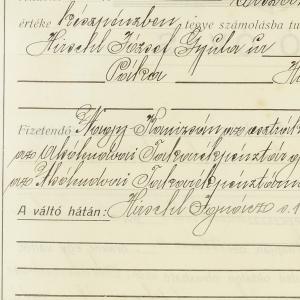 értéke készpénzben tegye számolásba tu
Hirschl József Gyula úr
Páka
Fizetendő Nagy Kanizsán az osztrák
az Alsólendvai Takarékpénztár
az Alsólendvai Takarékpénztárn
A váltó hátán: Hirschl Ignácz s. k